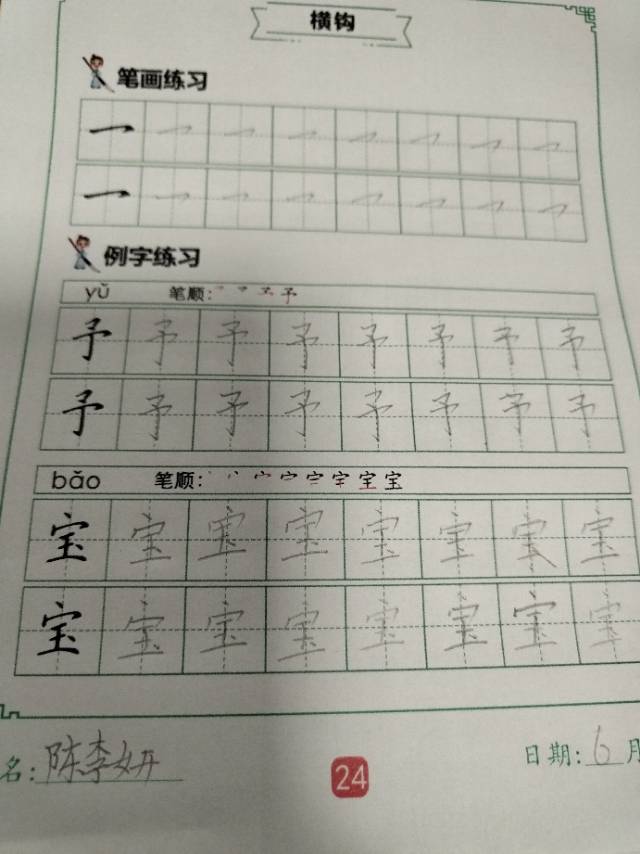 横钩
笔画练习
例字练习
yǔ 笔顺:
予 予 予 予 予 予 予 予
予 予 予 予 予 予 予 予
bǎo 笔顺:
宝 宝 宝 宝 宝 宝 宝 宝
宝 宝 宝 宝 宝 宝 宝 宝
名: 陈李妍 24 日期: 6 月